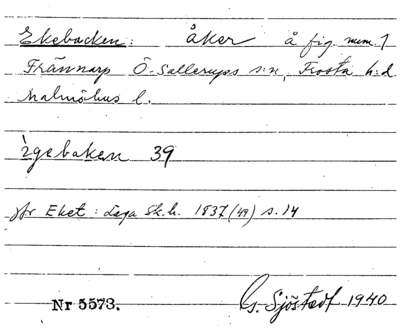 Ekebacken: åker å fig. num. 1
Frännarp Ö. Sallerups s:n, Frosta h:d
Malmöhus l.
ìgebaken 39
jfr Eket: Laga sk.h. 1837 (49) s. 14
Nr 5573. G. Sjöstedt 1940